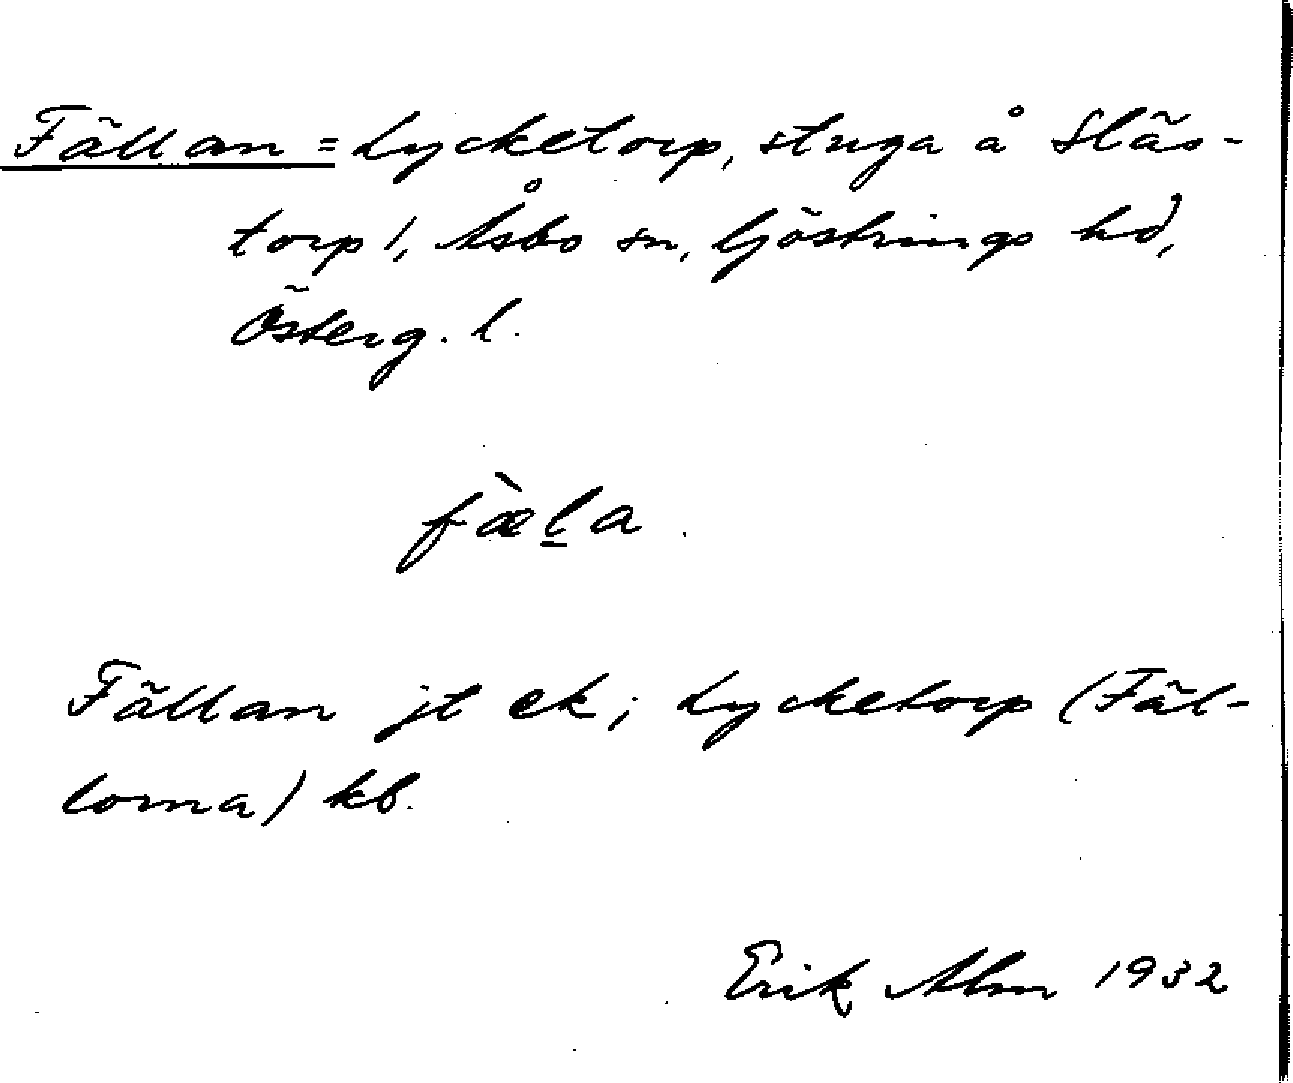 Fällan = Lycketorp, stuga å Släs-
torp 1, Åsbo sn, Göstrings hd,
Österg. l.
fæ̀l̲a.
Fällan jt ek; Lycketorp (Fäl-
lorna) kb.
Erik Alm 1932